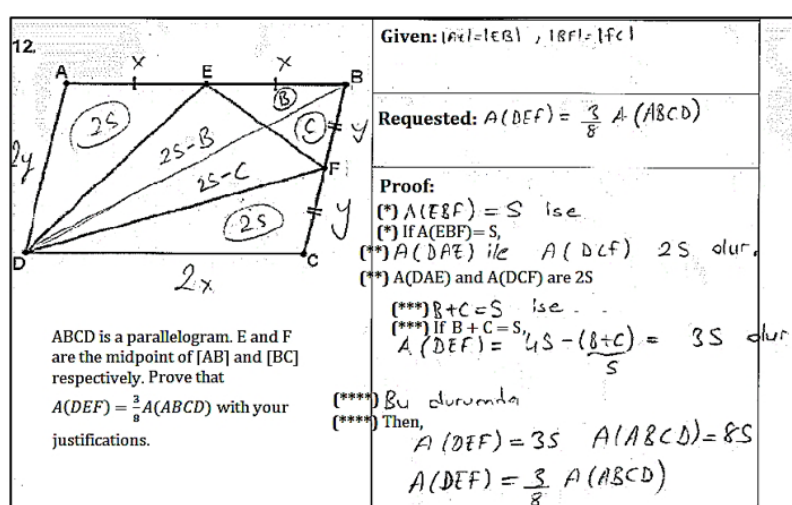 12.
A
x
E
x
B
2S
B
C
y
2y
2S-B
2S-C
F
2S
y
D
2x
C
ABCD is a parallelogram. E and F
are the midpoint of [AB] and [BC]
respectively. Prove that
A(DEF) = 3/8 A(ABCD) with your
justifications.
Given: |AE|=|EB| , |BF|=|FC|
Requested: A(DEF) = 3/8 A(ABCD)
Proof:
(*) A(EBF) = S ise
(*) If A(EBF)= S,
(**) A(DAE) ile A(DCF) 2S olur.
(**) A(DAE) and A(DCF) are 2S
(***) B+C=S ise..
(***) If B + C = S,
A(DEF) = 4S-(B+C) = 3S olur
S
(****) Bu durumda
(****) Then,
A(DEF) = 3S A(ABCD)=8S
A(DEF) = 3/8 A(ABCD)